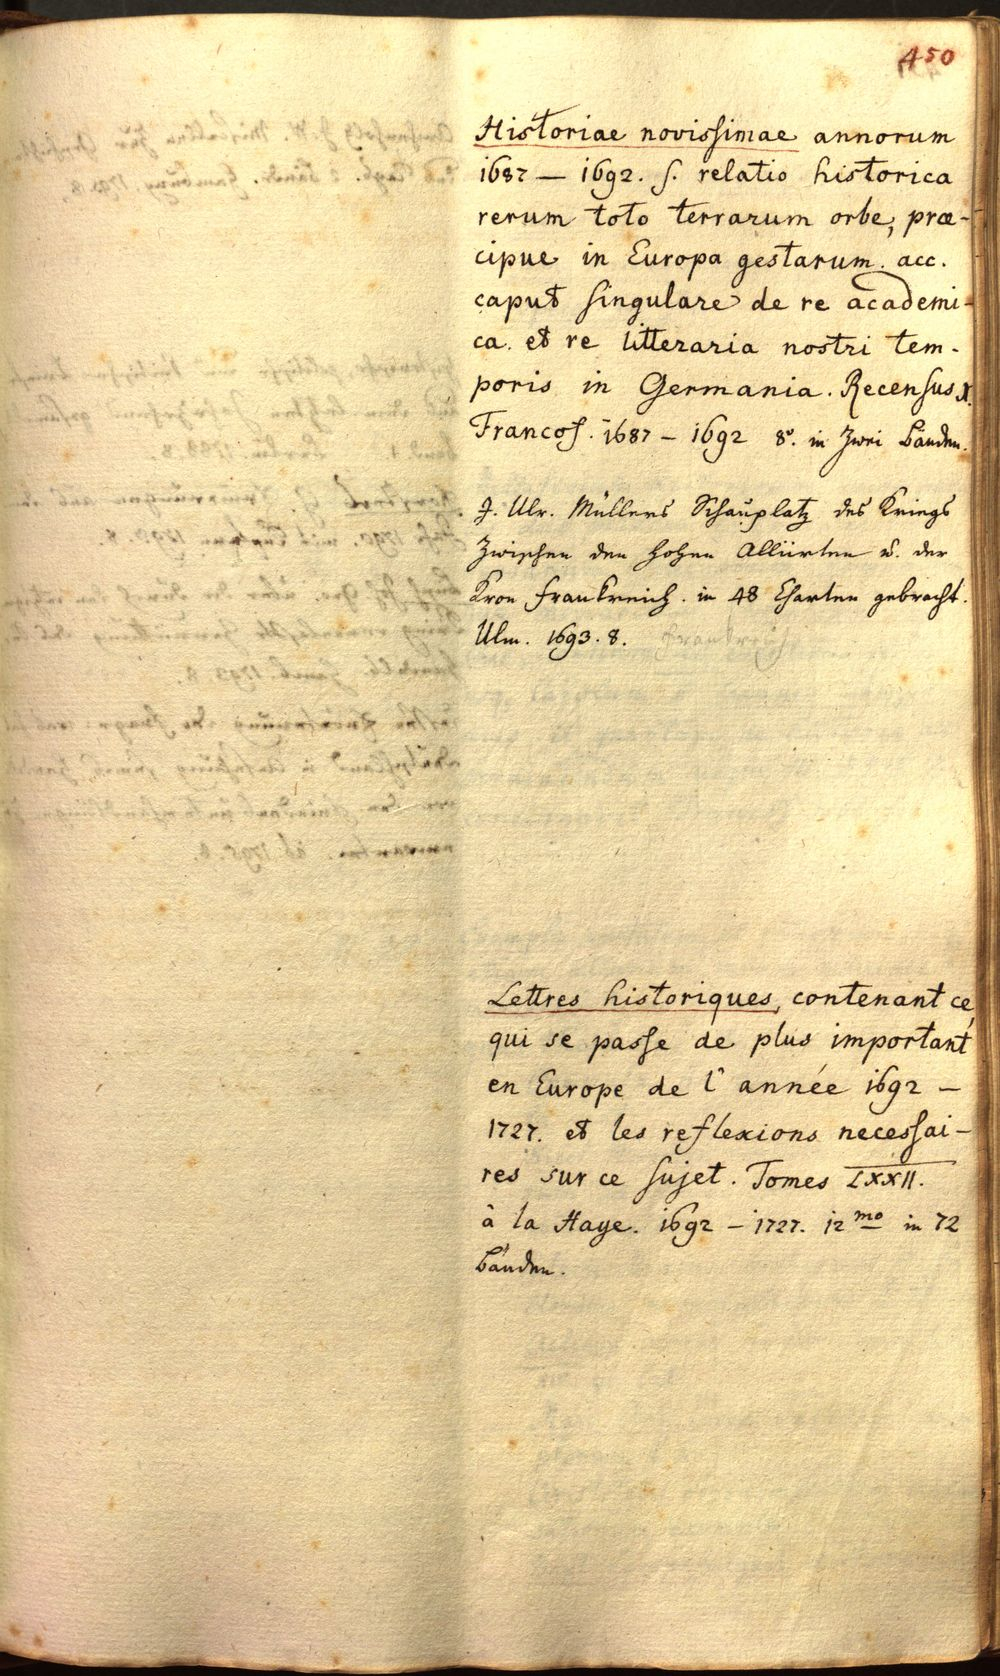 450
Historiae novissimae annorum
1687 — 1692. s. relatio historica
rerum toto terrarum orbe, præ-
cipue in Europa gestarum. acc.
caput singulare de re academi-
ca et re litteraria nostri tem-
poris in Germania. Recensus X.
Francof. 1687 — 1692 8º. in Zwei Bänden.
J. Ulr. Müllers Schauplatz des Kriegs
Zwischen den hohen Alliirten u. der
Kron Frankreich. in 48 Charten gebracht.
Ulm. 1693. 8. Frankreich
Lettres historiques, contenant ce
qui se passe de plus important
en Europe de l'année 1692 —
1727. et les reflexions necessai-
res sur ce sujet. Tomes LXXII.
à la Haye. 1692 — 1727. 12mo in 72
Bänden.